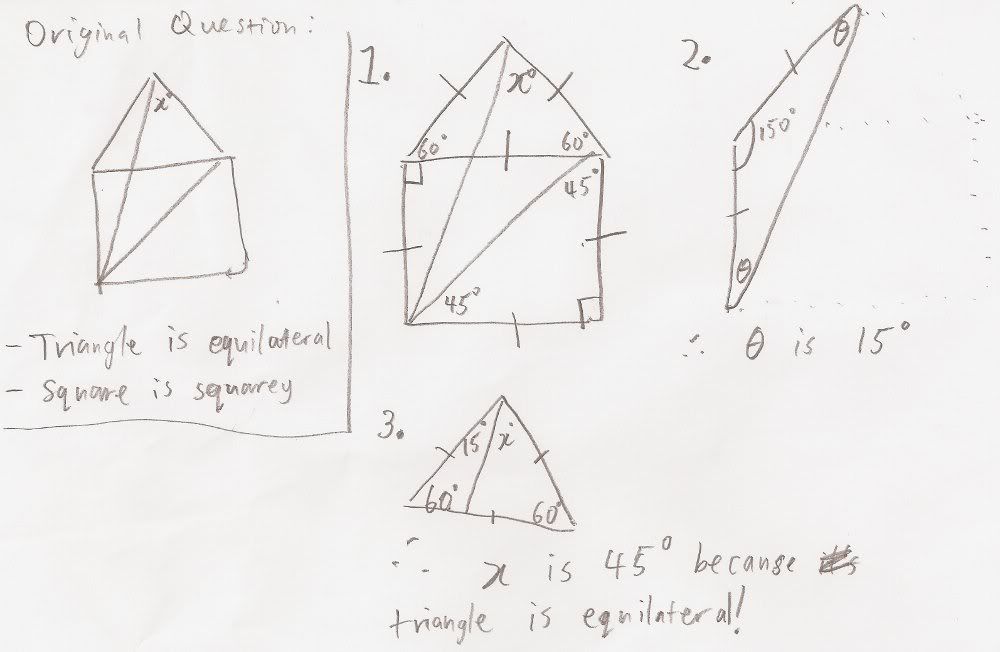 Original Question:
x°
- Triangle is equilateral
- Square is squarey
1.
x°
60°
60°
45°
45°
2.
θ
150°
θ
∴ θ is 15°
3.
15°
x°
60°
60°
∴ x is 45° because
triangle is equilateral!